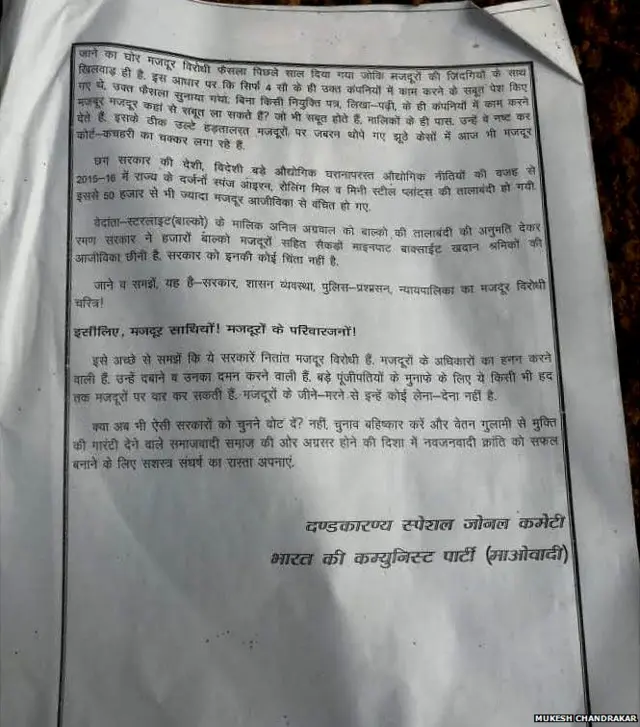 जाने का घोर मजदूर विरोधी फैसला पिछले साल दिया गया जोकि मजदूरों की जिंदगियों के साथ
खिलवाड़ ही है. इस आधार पर कि सिर्फ 4 सौ के ही उक्त कंपनियों में काम करने के सबूत पेश किए
गए थे, उक्त फैसला सुनाया गया. बिना किसी नियुक्ति पत्र, लिखा-पढ़ी, के ही कंपनियों में काम करने
मजबूर मजदूर कहां से सबूत ला सकते हैं? जो भी सबूत होते हैं, मालिकों के ही पास. उन्हें वे नष्ट कर
देते हैं. इसके ठीक उल्टे हड़तालरत मजदूरों पर जबरन थोपे गए झूठे केसों में आज भी मजदूर
कोर्ट-कचहरी का चक्कर लगा रहे हैं.
छग सरकार की देशी, विदेशी बड़े औद्योगिक घरानापरस्त औद्योगिक नीतियों की वजह से
2015-16 में राज्य के दर्जनों स्पंज आइरन, रोलिंग मिल व मिनी स्टील प्लांट्स की तालाबंदी हो गयी.
इससे 50 हजार से भी ज्यादा मजदूर आजीविका से वंचित हो गए.
वेदांता-स्टरलाइट(बाल्को) के मालिक अनिल अग्रवाल को बाल्को की तालाबंदी की अनुमति देकर
रमण सरकार ने हजारों बाल्को मजदूरों सहित सैकड़ों माइनपाट बाक्साईट खदान श्रमिकों की
आजीविका छीनी है. सरकार को इनकी कोई चिंता नहीं है.
जाने व समझें, यह है-सरकार, शासन व्यवस्था, पुलिस-प्रश्प्रसन, न्यायपालिका का मजदूर विरोधी
चरित्र!
इसीलिए, मजदूर साथियों! मजदूरों के परिवारजनों!
इसे अच्छे से समझें कि ये सरकारें नितांत मजदूर विरोधी हैं. मजदूरों के अधिकारों का हनन करने
वाली हैं. उन्हें दबाने व उनका दमन करने वाली हैं. बड़े पूंजीपतियों के मुनाफे के लिए ये किसी भी हद
तक मजदूरों पर वार कर सकती हैं. मजदूरों के जीने-मरने से इन्हें कोई लेना-देना नहीं है.
क्या अब भी ऐसी सरकारों को चुनने वोट दें? नहीं, चुनाव बहिष्कार करें और वेतन गुलामी से मुक्ति
की गारंटी देने वाले समाजवादी समाज की ओर अग्रसर होने की दिशा में नवजनवादी क्रांति को सफल
बनाने के लिए सशस्त्र संघर्ष का रास्ता अपनाएं.
दण्डकारण्य स्पेशल जोनल कमेटी
भारत की कम्युनिस्ट पार्टी (माओवादी)
MUKESH CHANDRAKAR